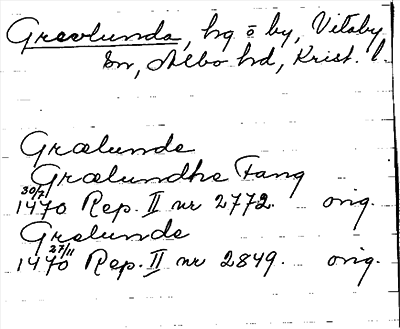 Gravlunda, hg o by, Vitaby
sn, Albo hd, Krist. l.
Grælunde
Grælundhe Fang
30/7
1470 Rep. II nr 2772. orig.
Grelunde
27/11
1470 Rep. II nr 2849. orig.